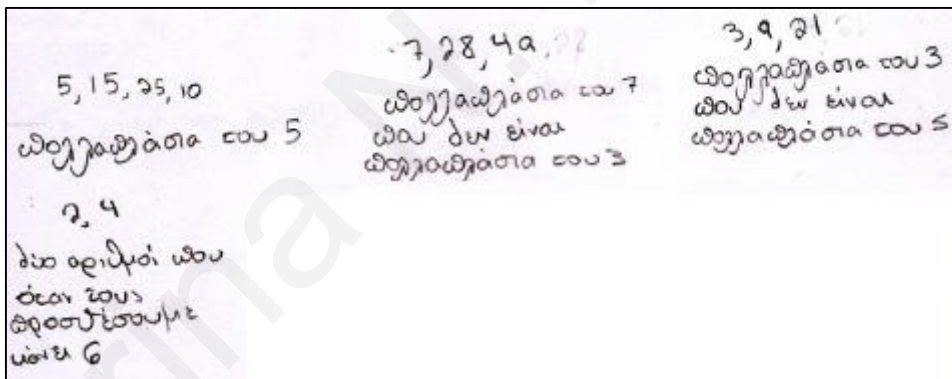 5, 15, 25, 10
πολλαπλάσια του 5
7, 28, 49,
πολλαπλάσια του 7
που δεν είναι
πολλαπλάσια του 3
3, 9, 21
πολλαπλάσια του 3
που δεν είναι
πολλαπλάσια του 5
2, 4
δύο αριθμοί που
όταν τους
προσθέσουμε
κάνει 6